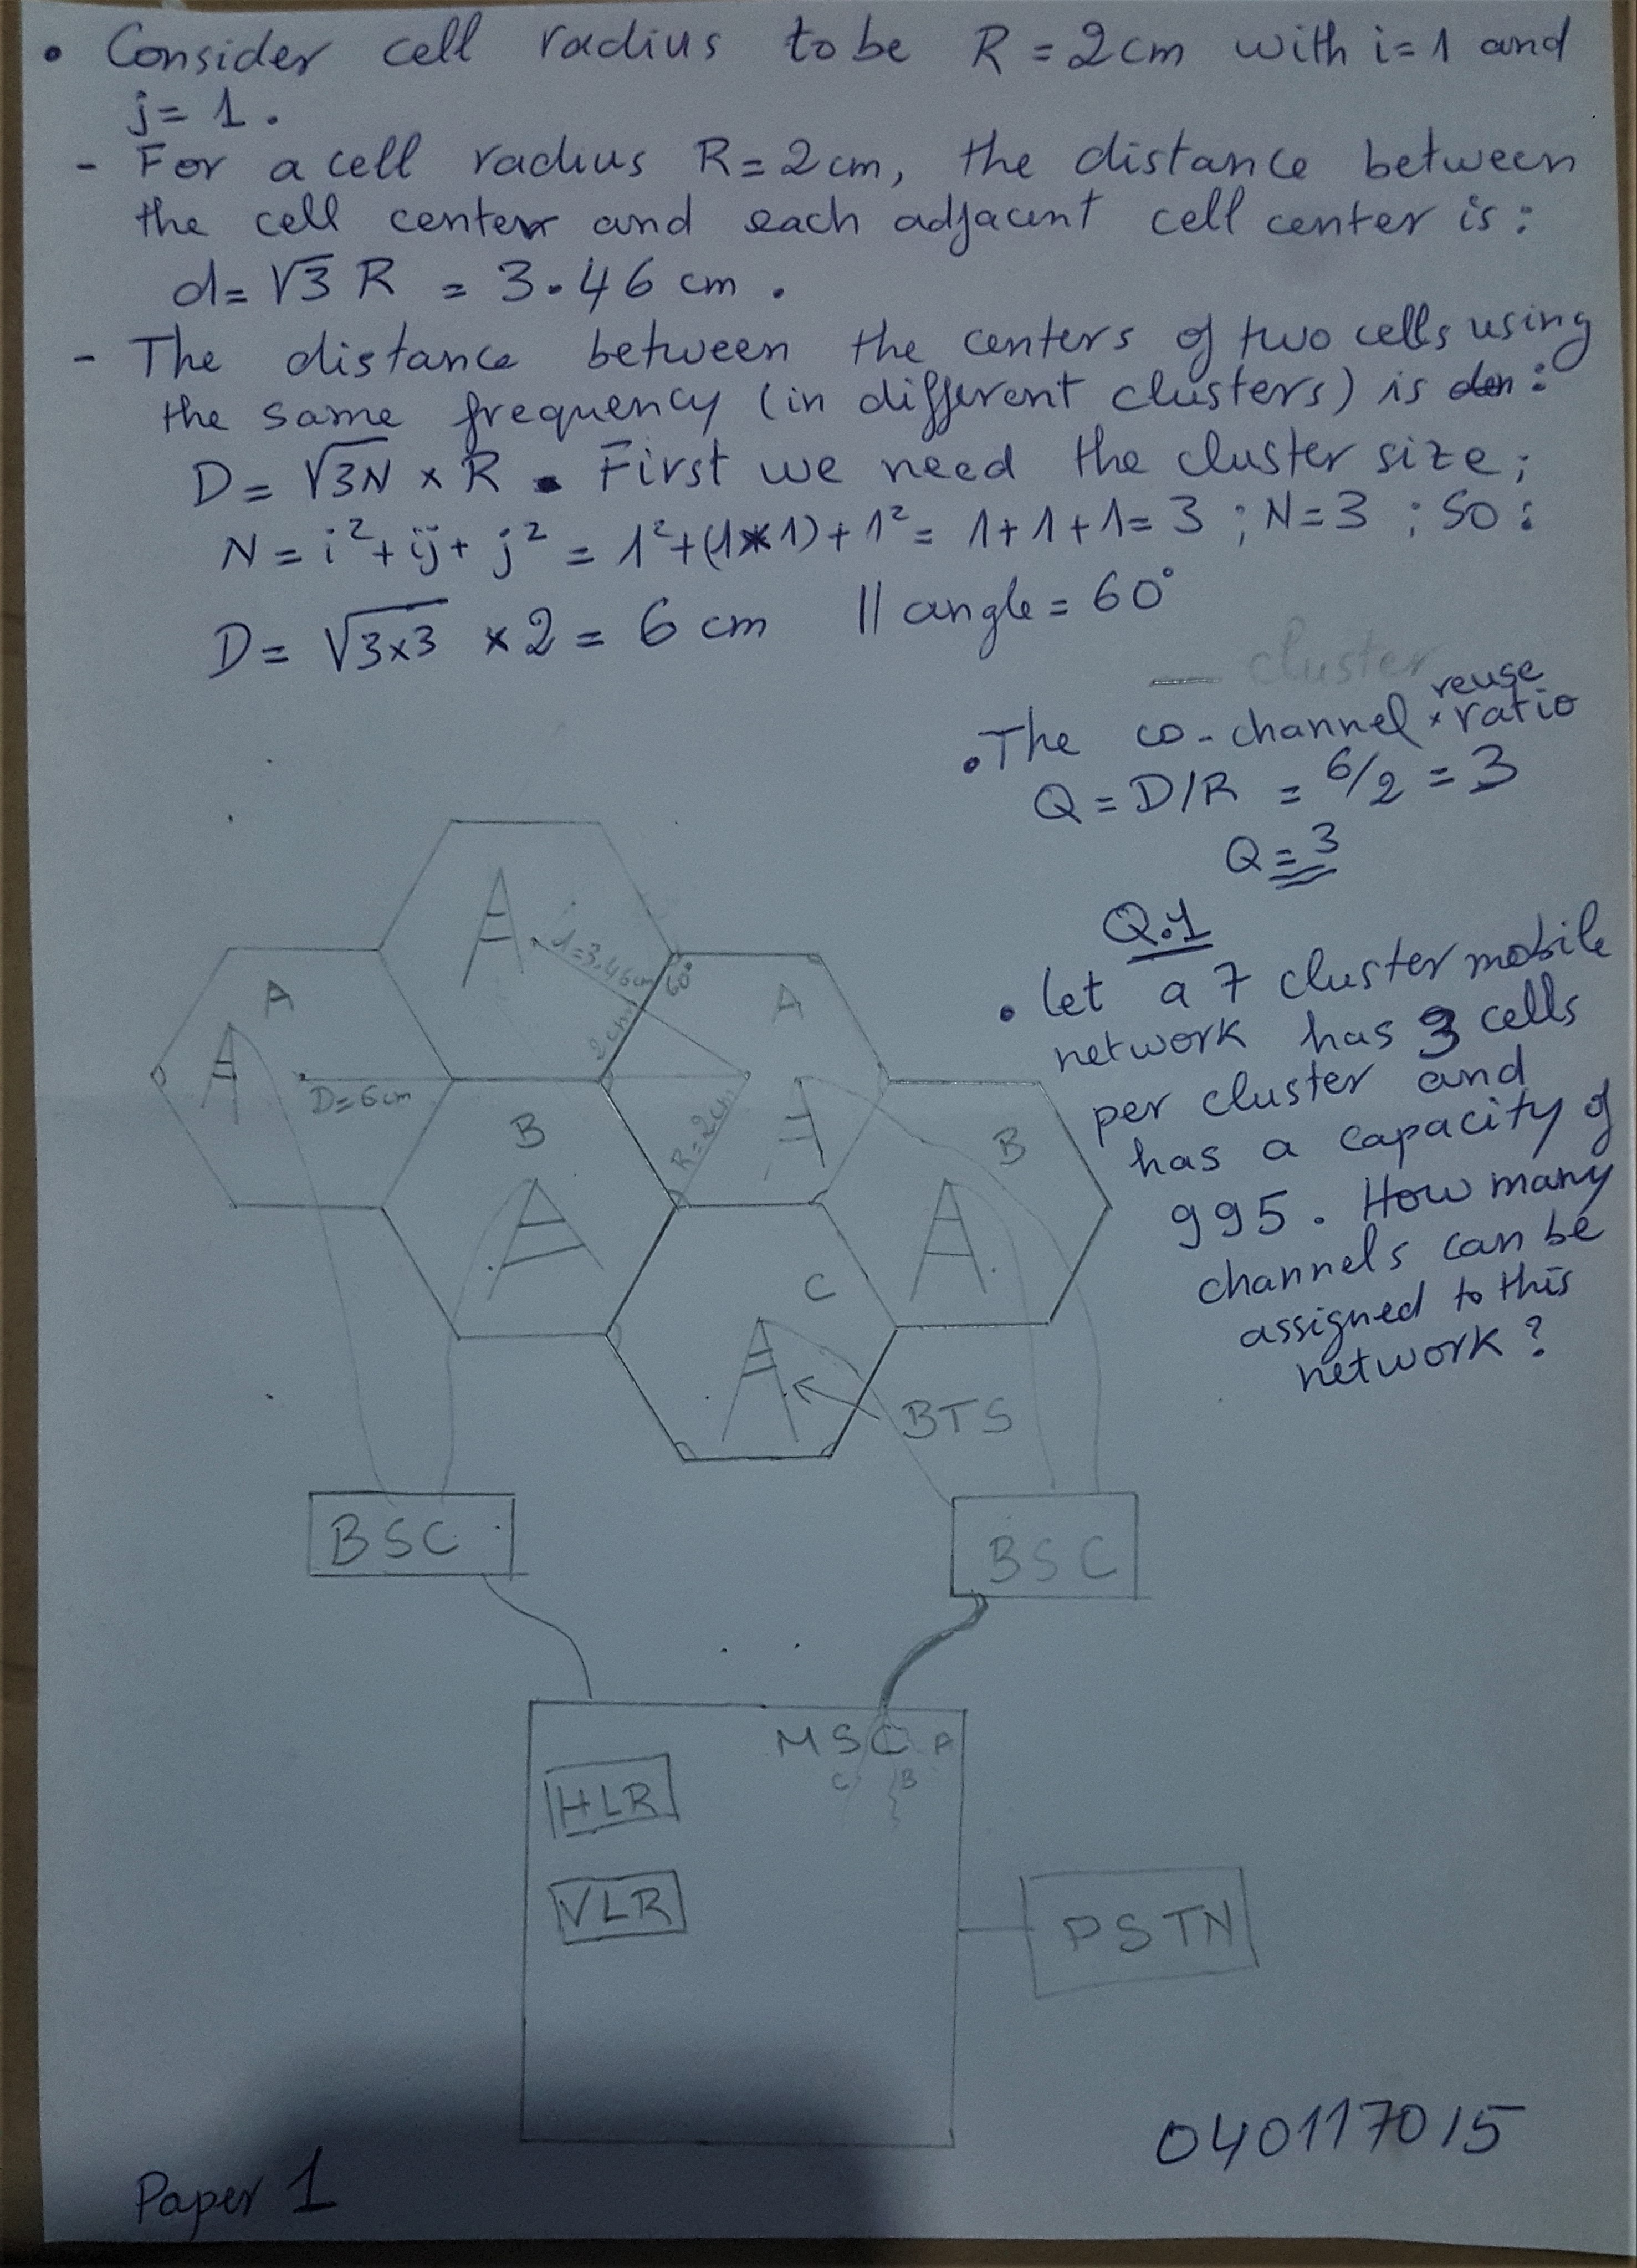 • Consider cell radius to be R = 2cm with i=1 and
j= 1.
- For a cell radius R=2cm, the distance between
the cell center and each adjacent cell center is:
d= √3 R = 3.46 cm.
- The distance between the centers of two cells using
the same frequency (in different clusters) is :
D= √3N × R. First we need the cluster size;
N = i²+ ij + j² = 1²+(1*1)+1² = 1+1+1= 3 ; N=3 ; So:
D= √3×3 ×2 = 6 cm || angle = 60°
— cluster
reuse
• The co-channel × ratio
Q = D/R = 6/2 = 3
Q = 3
Q.1
• let a 7 cluster mobile
network has 3 cells
per cluster and
has a capacity of
995. How many
channels can be
assigned to this
network?
=3.46cm
60°
A
A
2cm
D=6cm
R=2cm
B
B
C
BTS
BSC
BSC
MSC A
C B
HLR
VLR
PSTN
040117015
Paper 1